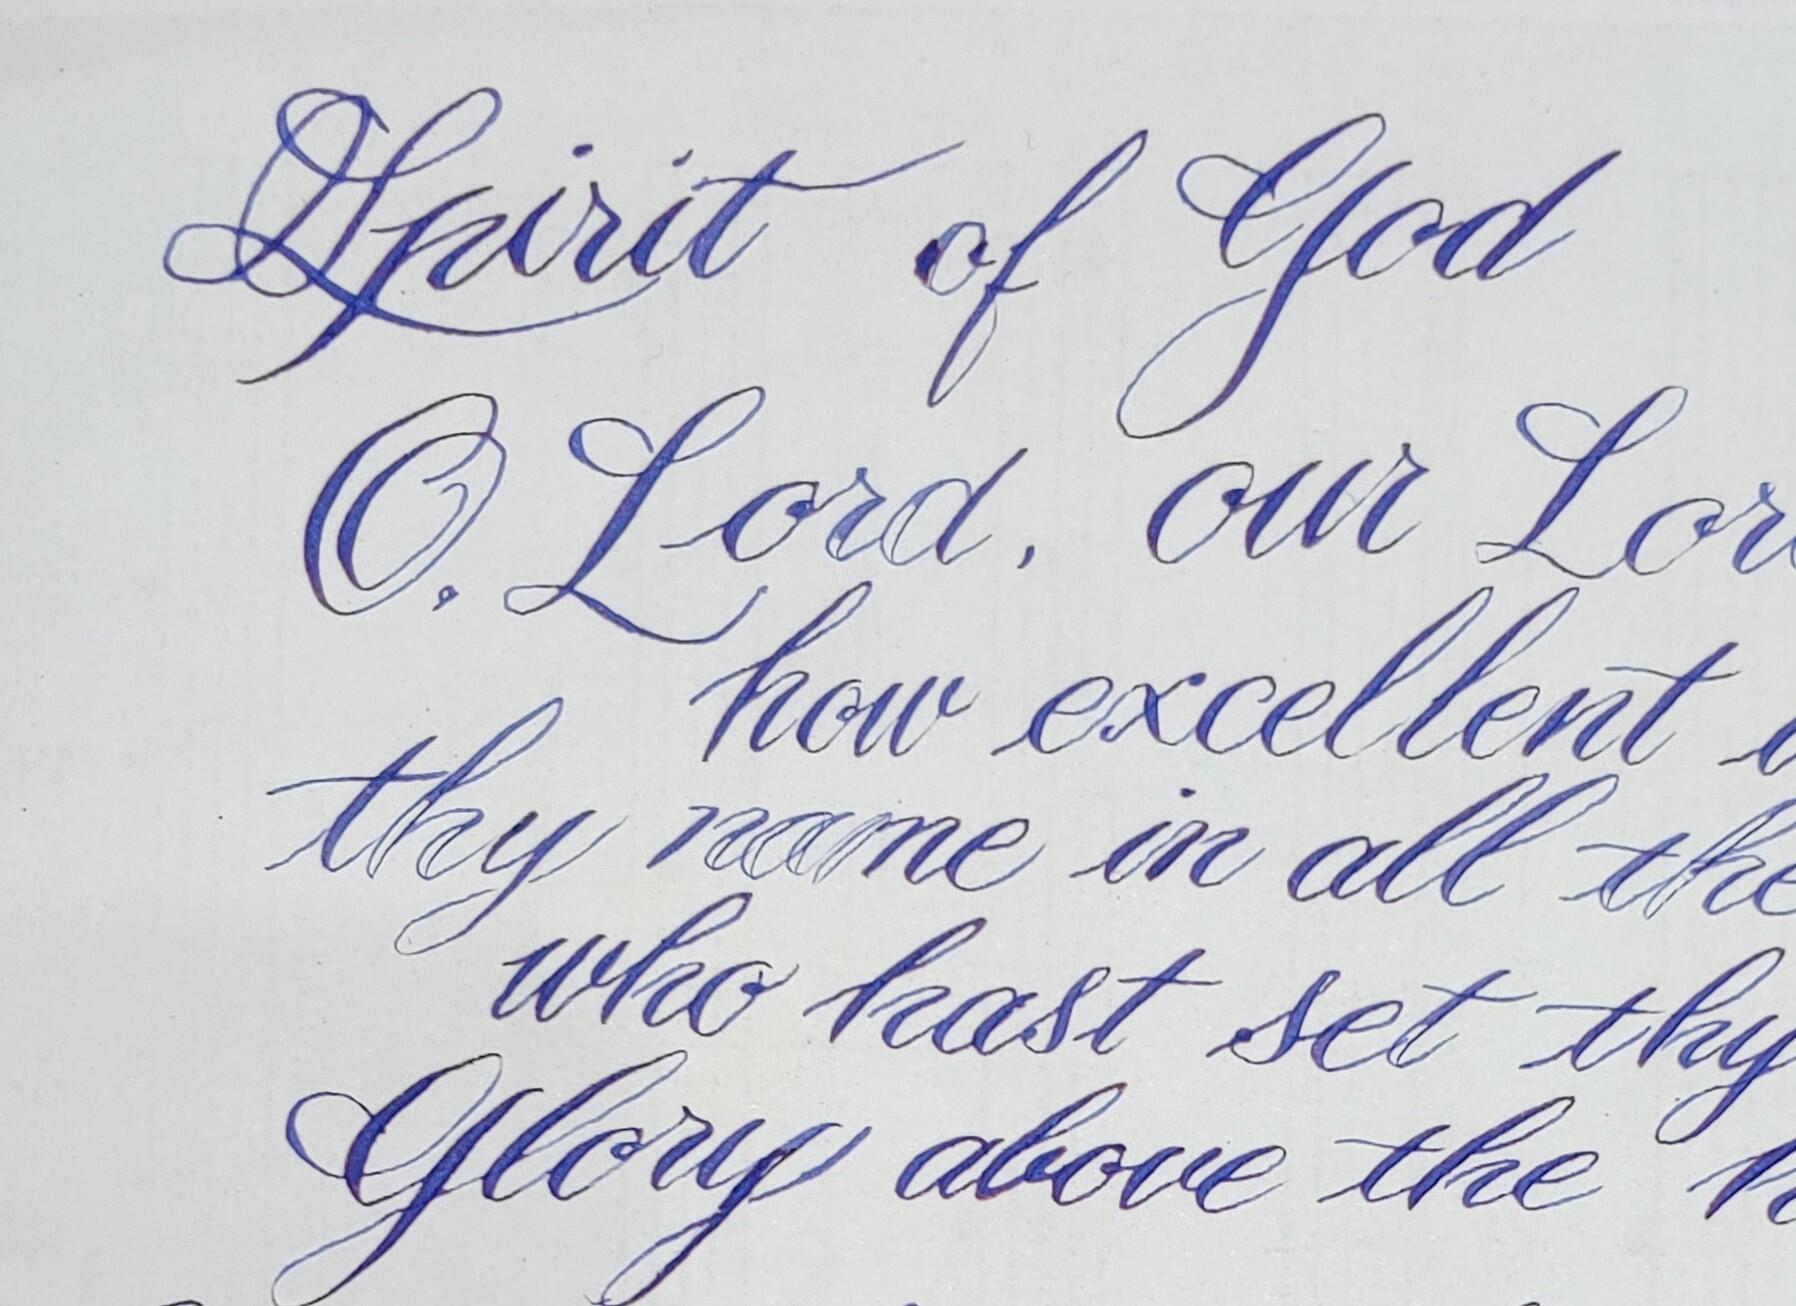 Spirit of God
O. Lord, our Lor
how excellent
thy name in all the
who hast set thy
Glory above the